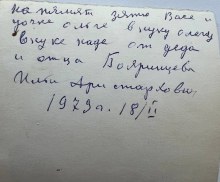 на память зятю Васе и
дочке Ольге внуку Олегу
внуке Наде от деда
и отца Бояринцева
Ильи Аристархови.
1973 г. 18/II